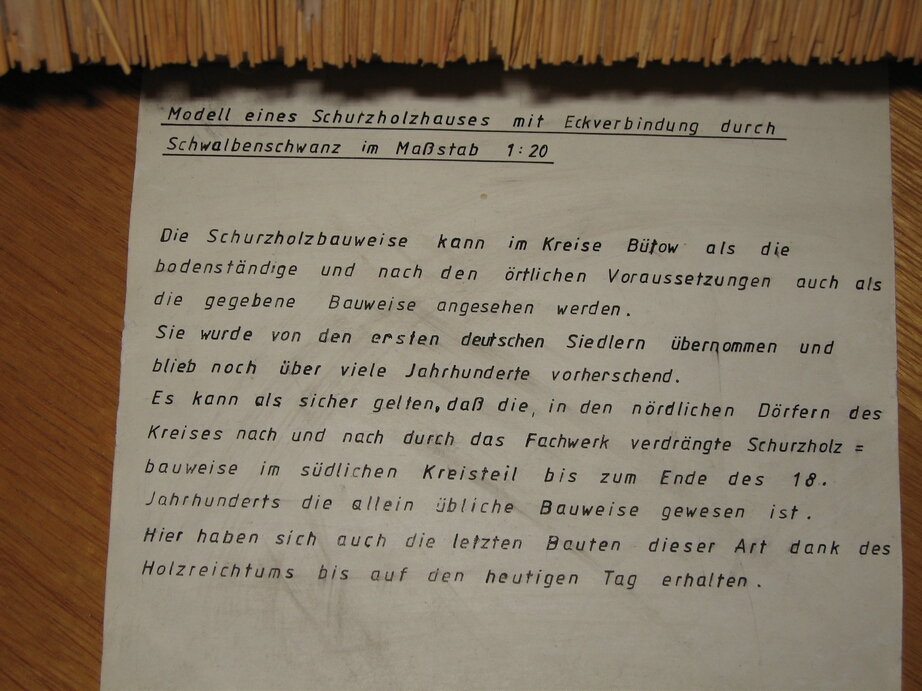 Modell eines Schurzholzhauses mit Eckverbindung durch
Schwalbenschwanz im Maßstab 1:20
Die Schurzholzbauweise kann im Kreise Bütow als die
bodenständige und nach den örtlichen Voraussetzungen auch als
die gegebene Bauweise angesehen werden.
Sie wurde von den ersten deutschen Siedlern übernommen und
blieb noch über viele Jahrhunderte vorherschend.
Es kann als sicher gelten, daß die, in den nördlichen Dörfern des
Kreises nach und nach durch das Fachwerk verdrängte Schurzholz =
bauweise im südlichen Kreisteil bis zum Ende des 18.
Jahrhunderts die allein übliche Bauweise gewesen ist.
Hier haben sich auch die letzten Bauten dieser Art dank des
Holzreichtums bis auf den heutigen Tag erhalten.